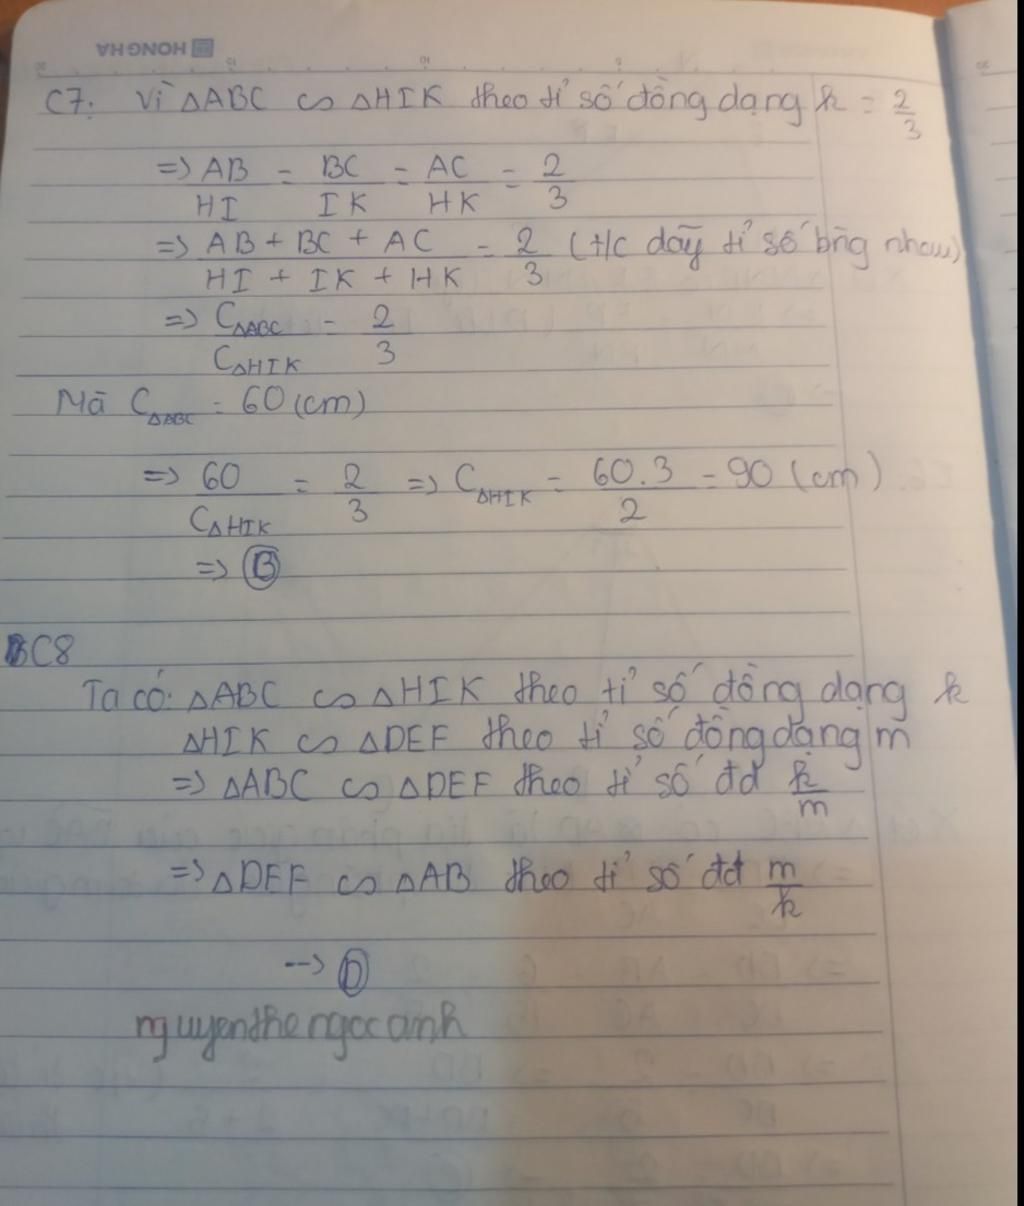 HONGHA
C7: Vì ΔABC ∽ ΔHIK theo tỉ số đồng dạng k = 2/3
=> AB/HI = BC/IK = AC/HK = 2/3
=> (AB + BC + AC)/(HI + IK + HK) = 2/3 (t/c dãy tỉ số bằng nhau)
=> C_ΔABC/C_ΔHIK = 2/3
Mà C_ΔABC = 60 (cm)
=> 60/C_ΔHIK = 2/3 => C_ΔHIK = 60.3/2 = 90 (cm)
=> B
C8
Ta có: ΔABC ∽ ΔHIK theo tỉ số đồng dạng k
ΔHIK ∽ ΔDEF theo tỉ số đồng dạng m
=> ΔABC ∽ ΔDEF theo tỉ số đd k/m
=> ΔDEF ∽ ΔAB theo tỉ số đd m/k
--> D
nguyenthengocanh